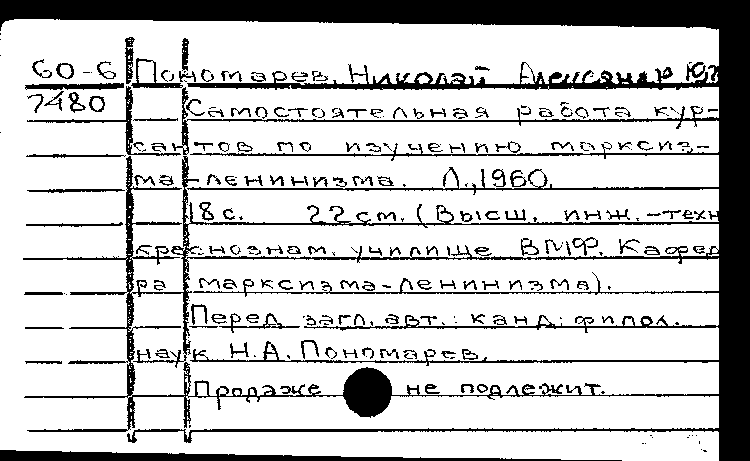 60-6 Пономарев, Николай
7480 Самостоятельная работа кур-
сантов по изучению марксиз-
ма-ленинизма. Л., 1960.
18 с. 22 см. (Высш. инж.-техн
краснознам. училище ВМФ. Кафед
ра марксизма-ленинизма).
Перед загл. авт.: канд. филол.
наук Н.А. Пономарев.
Продаже не подлежит.